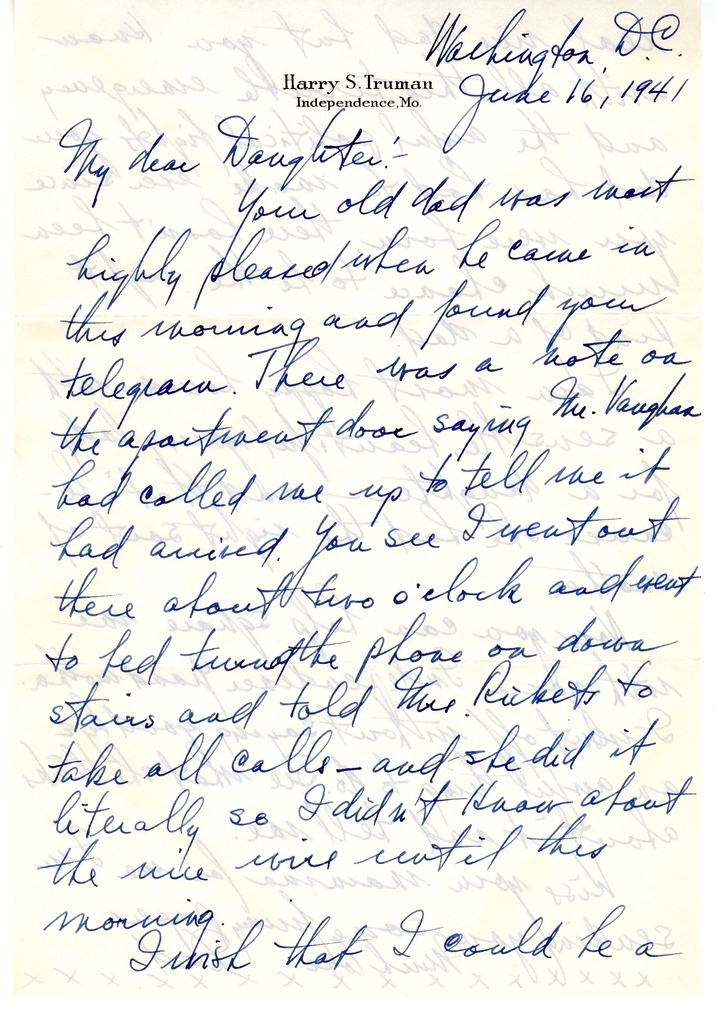 Washington, D.C.
Harry S. Truman
Independence, Mo.
June 16, 1941
My dear Daughter:-
Your old dad was most
highly pleased when he came in
this morning and found your
telegram. There was a note on
the apartment door saying Mr. Vaughan
had called me up to tell me it
had arrived. You see I went out
there about two o'clock and went
to bed turned the phone on down
stairs and told Mrs. Rickets to
take all calls - and she did it
literally so I didn't know about
the nice wire until this
morning.
I wish that I could be a
x x x x x x x x x x x x x x x